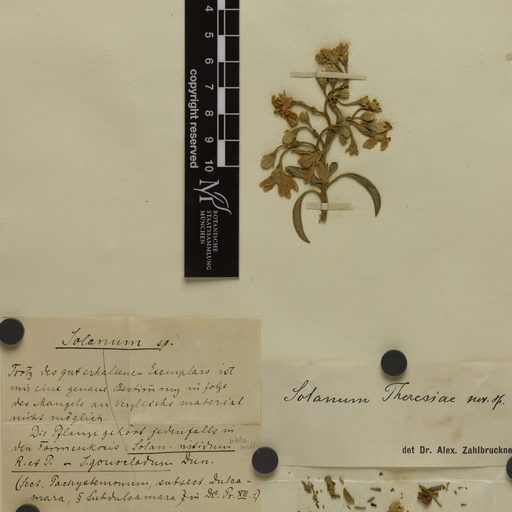 4
5
6
7
8
9
10
copyright reserved
BOTANISCHE
STAATSSAMMLUNG
MÜNCHEN
Solanum sp.
Trotz des gut erhaltenen Exemplars ist
mir eine genaue Bestimmung in folge
des Mangels an Vergleichs material
nicht möglich.
Die Pflanze gehört jedenfalls in
den Formenkreis: Solan. nitidum
R. et P. – S. gonocladum Dun.
(Sect. Pachystemonum, subsect. Dulca-
mara, § Subdulcamara in DC. Pr. XIII.1)
Solanum Theresiae nov. sp.
det Dr. Alex. Zahlbruckne